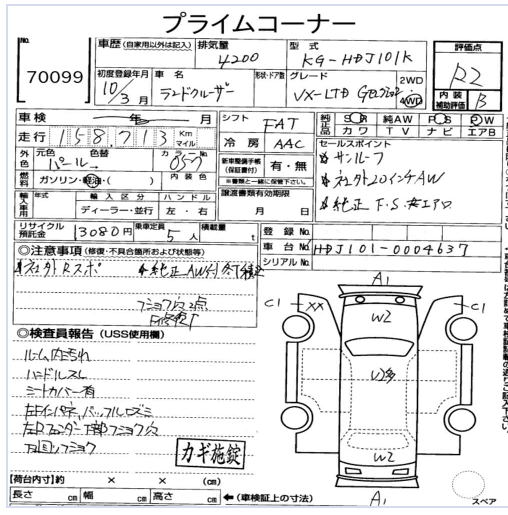 プライムコーナー
No.
70099
車歴 (自家用以外は記入)
排気量
4200
型式
KG-HDJ101K
評価点
R2
初度登録年月
10/3月
車名
ランドクルーザー
形状・ドア数
グレード
VX-LTD
2WD
4WD
内装
補助評価
B
車検
年 月
シフト
FAT
純正品
SR 純AW PS PW
カワ TV ナビ エアB
走行
158,713
Km
マイル
冷房
AAC
セールスポイント
サンルーフ
外色
元色
パール
色替
カラーNo.
057
新車整備手帳
(保証書付)
有・無
※書類と一緒に保管下さい。
社外20インチAW
燃料
ガソリン・軽油・( )
内装色
譲渡書類有効期限
月 日
純正 F.S.
輸入車用
年式
輸入区分
ディーラー・並行
ハンドル
左・右
リサイクル
預託金
13080円
乗車定員
5人
積載量
t
登録No.
車台No.
HDJ101-0004637
シリアルNo.
◎注意事項 (修復・不具合箇所および状態等)
社外Rスポ
純正AW付
フショク穴2点
◎検査員報告 (USS使用欄)
ルーム内汚れ
ハンドルスレ
シートカバー有
左Fインパネ、バッフルユガミ
左Rフェンダー下部フショク穴
下回りフショク
カギ施錠
A1
C1
XX
W2
C1
W多
W2
A1
スペア
【荷台内寸】約 × × (cm)
長さ cm 幅 cm 高さ cm
←(車検証上の寸法)